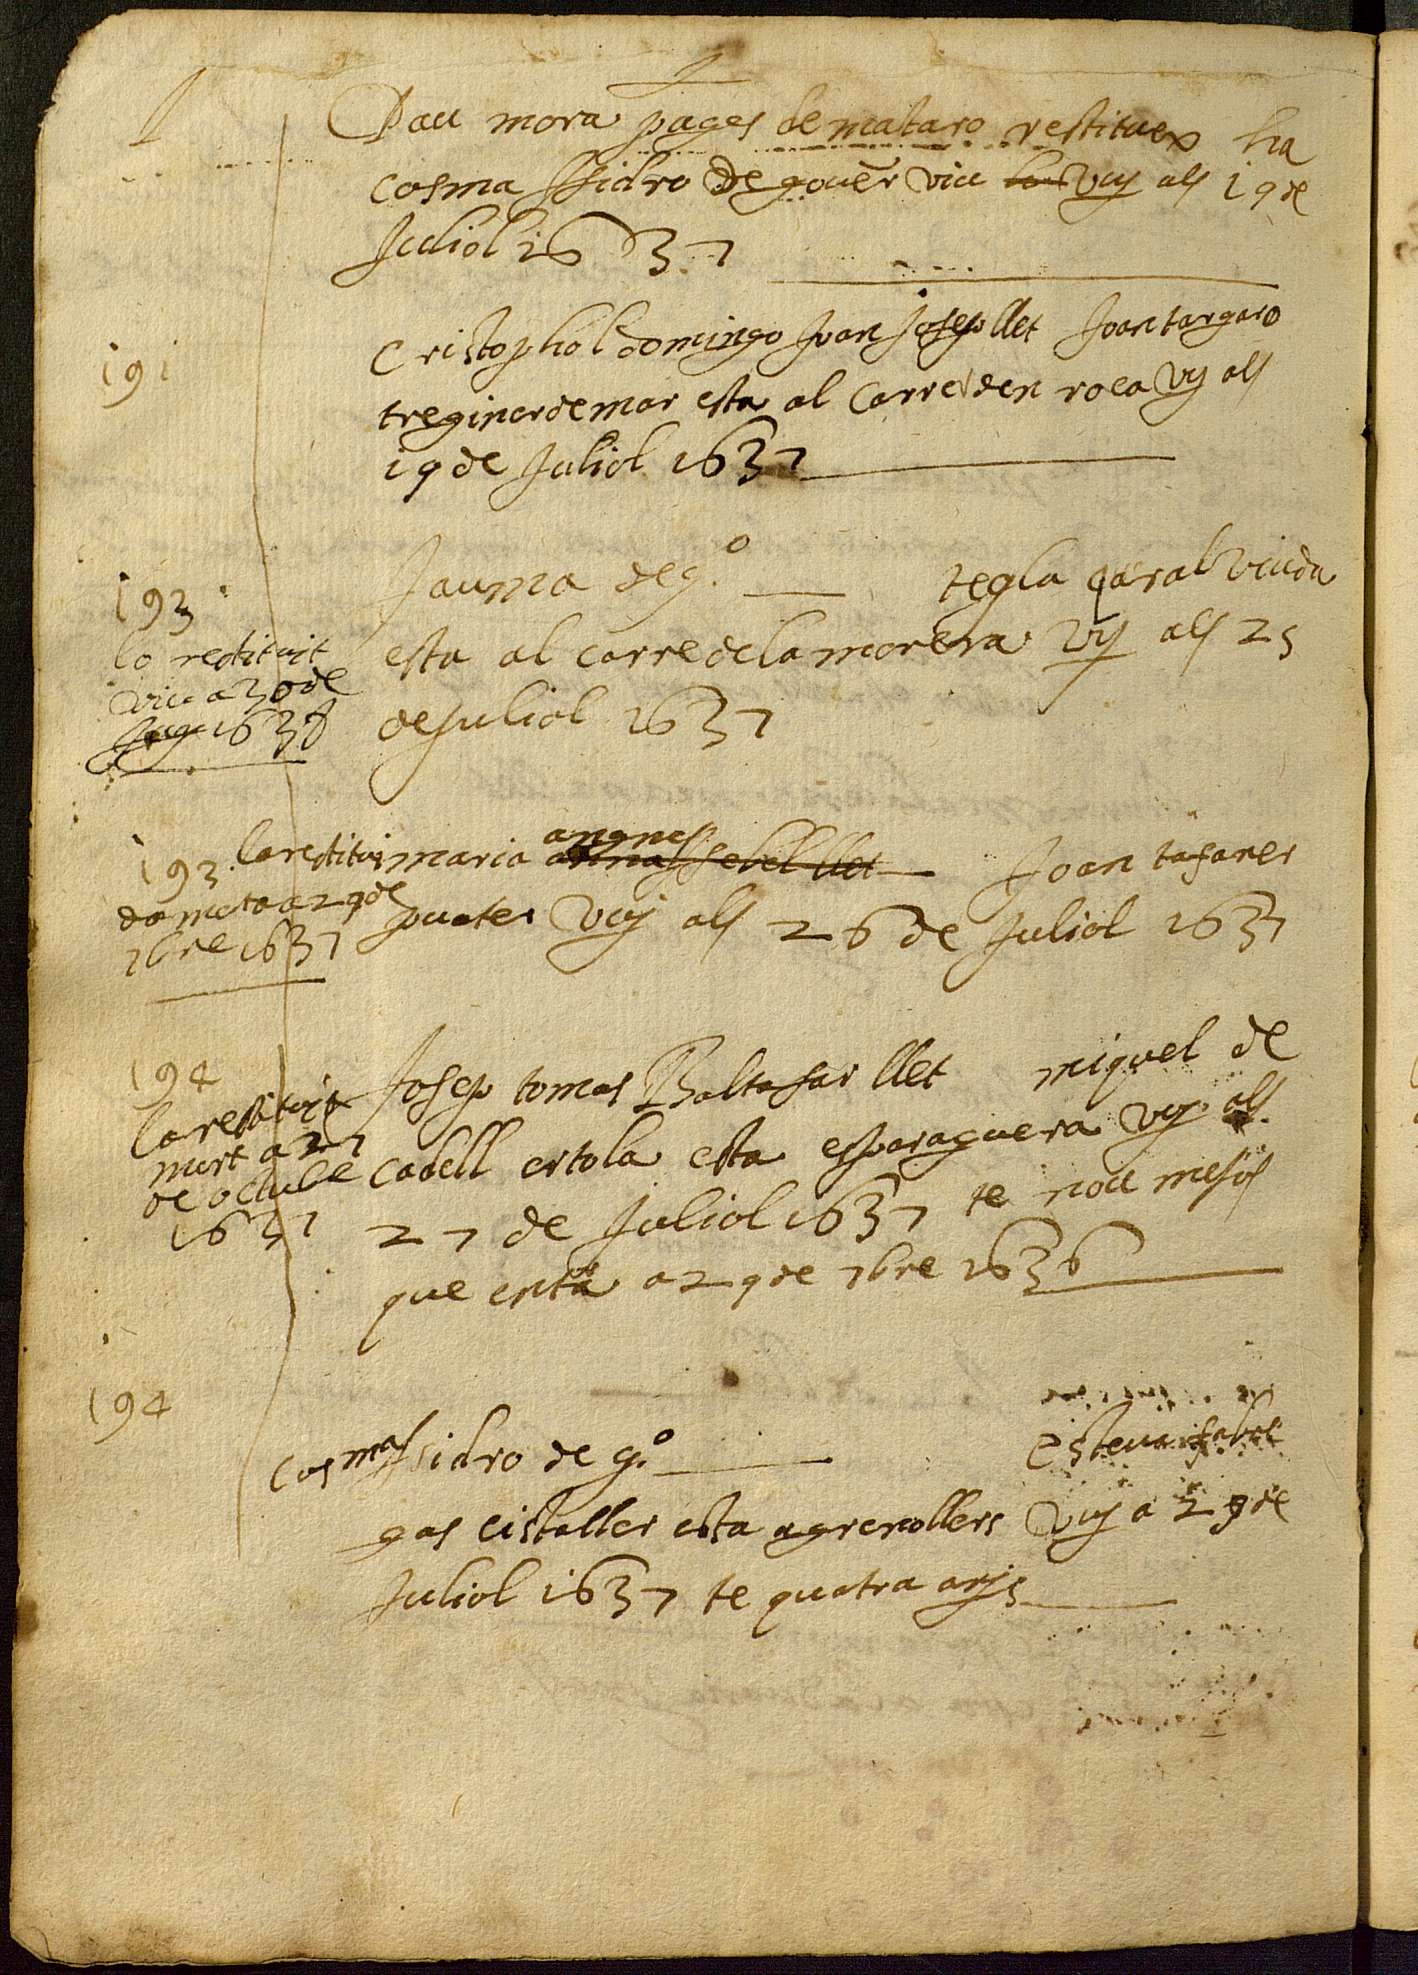 Pau mora pages de mataro restituex ha
cosma Issidro de govēr viu vuy als 19 de
Juliol 1637
191
Cristophol domingo Juan Josep llet Joan targaro
treginer de mar esta al carrer den roca vuy als
19 de Juliol 1637
193
lo restituit
viu a 30 de
1638
Jauma de g.º tegla viuda
esta al carre de la morera vuy als 25
de Juliol 1637
193
la restitui
da morta a 29 de
7bre 1637
maria angnes Joan tafaner
vuy als 26 de Juliol 1637
194
lo restituit
mort a 27
de octubre
1637
Josep tomas Baltasar llet miquel de
cadell ortola esta esparaguera vuy als
27 de Juliol 1637 te nou mesos
que entra a 29 de 7bre 1636
194
Cosma Issidro de g.º esteva fabre
gas cistaller esta a grenollers vuy a 29 de
Juliol 1637 te quatra anys